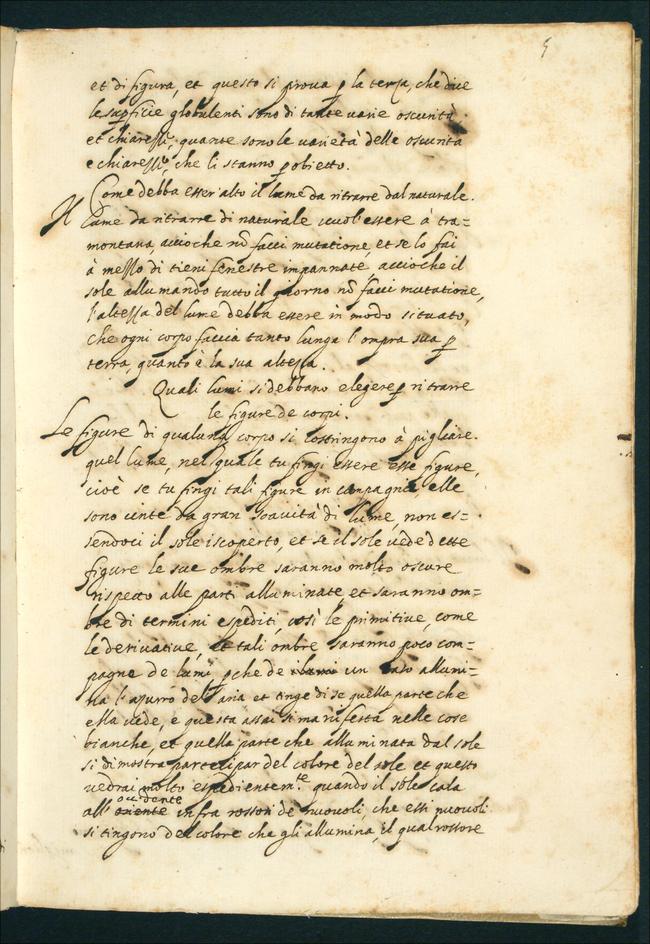 5
et di figura, et questo si prova p la terza, che dice
le supficie globulenti sono di tante varie oscurità
et chiarezze, quante sono le varietà delle oscurita
e chiarezze, che li stanno p obietto.
Come debba esser alto il lume da ritrarre dal naturale.
Il lume da ritrarre di naturale vuol essere à tra=
montana, accioche nõ facci mutatione, et se lo fai
à mezzo di tieni fenestre impannate accioche il
sole allumando tutto il giorno nõ facci mutatione,
l'altezza del lume debba essere in modo situato,
che ogni corpo faccia tanto lunga l'ompra sua p
terra, quanto è la sua altezza.
Quali lumi si debbano elegere p ritrarre
le figure de corpi.
Le figure di qualunq corpo si costringono à pigliare
quel lume, nel quale tu fingi essere esse figure,
cioè se tu fingi tali figure in campagna elle
sono cinte da gran soavità di lume, non es=
sendoci il sole iscoperto, et se il sole vede dette
figure le sue ombre saranno molto oscure
rispetto alle parti alluminate, et saranno om=
bre di termini espediti, così le primitive, come
le derivative, et tali ombre saranno poco com=
pagne de lumi pche de un lato allumi=
na l'azurro dell'aria et tinge di se quella parte che
ella vede, e questa assai si manifesta nelle cose
bianche, et quella parte che alluminata dal sole
si dimostra partecipar del colore del sole et questo
vedrai molto espedientem.te quando il sole cala
all' occidente infra rossori de nuovoli, che essi nuovoli
si tingono del colore che gli allumina, il qual rossore